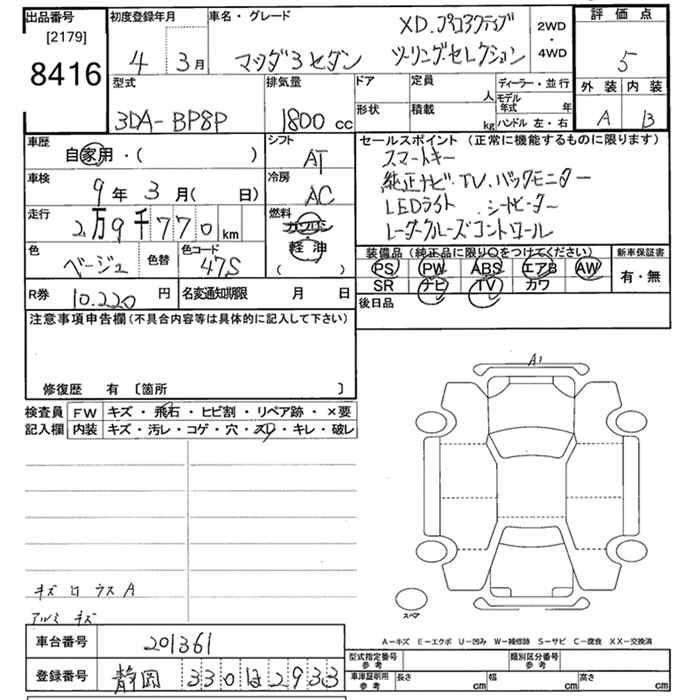 出品番号
[2179]
8416
初度登録年月
4 3月
車名・グレード
マツダ3セダン
XD.プロアクティブ
ツーリング.セレクション
2WD
・
4WD
評価点
5
外装 内装
A B
型式
3DA-BP8P
排気量
1800 cc
ドア
形状
定員
人
積載
kg
ディーラー・並行
モデル年式 年
ハンドル 左・右
車歴
自家用・( )
シフト
AT
車検
9年3月( 日)
冷房
AC
走行
2万9千770km
燃料
ガソリン
軽油
( )
色
ベージュ
色替
色コード
47S
R券
10.220円
名変通知期限 月 日
セールスポイント (正常に機能するものに限ります)
スマートキー
純正ナビ.TV.バックモニター
LEDライト シートヒーター
レーダークルーズコントロール
装備品(純正品に限り○をつけてください)
PS PW ABS エアB AW
SR ナビ TV カワ
新車保証書
有・無
後日品
注意事項申告欄(不具合内容等は具体的に記入して下さい)
修復歴 有 [箇所 ]
検査員記入欄
FW キズ・飛石・ヒビ割・リペア跡・×要
内装 キズ・汚レ・コゲ・穴・スレ・キレ・破レ
A1
アルミ キズ
スペア
A−キズ E−エクボ U−凹み W−補修跡 S−サビ C−腐食 XX−交換済
車台番号
201361
登録番号
静岡 330は2933
型式指定番号
参考
類別区分番号
参考
車庫証明用
参考
長さ cm
幅 cm
高さ cm